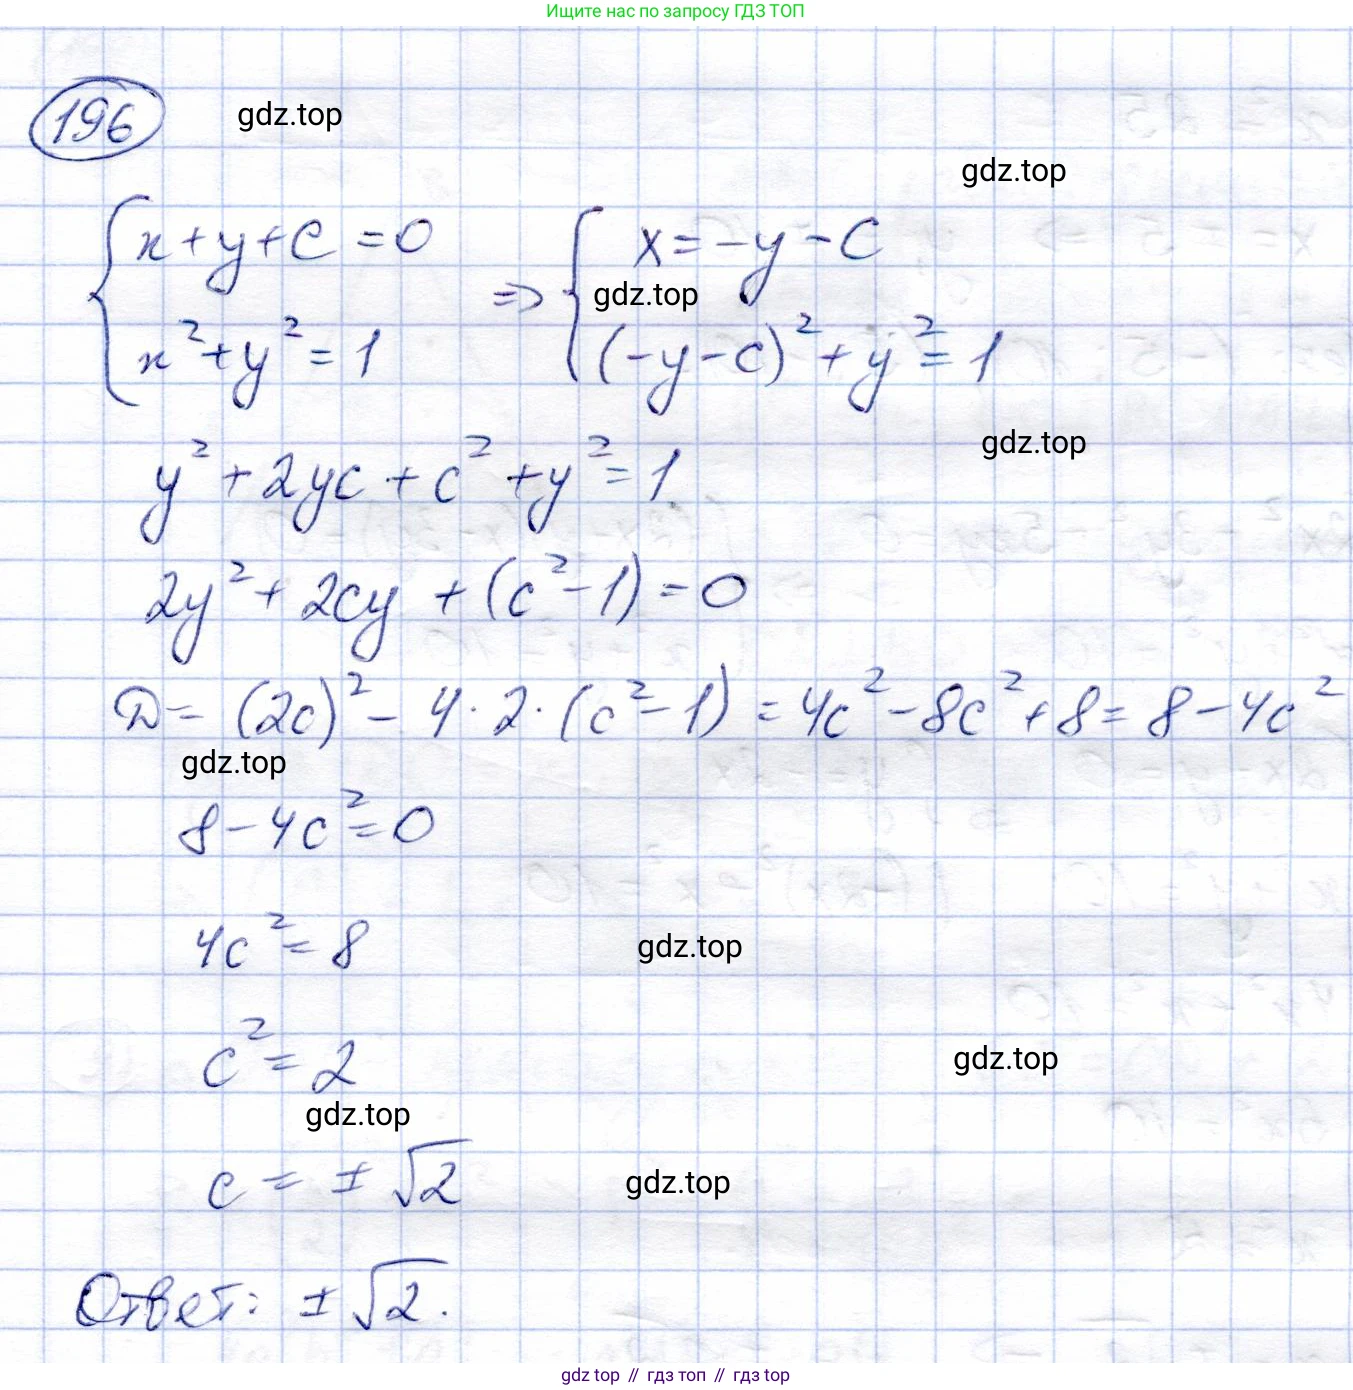 Ищите нас по запросу ГДЗ ТОП
196
gdz.top
gdz.top
{ x+y+c=0 => { x=-y-c
gdz.top
x²+y²=1 (-y-c)²+y²=1
gdz.top
y²+2yc+c²+y²=1
2y²+2cy+(c²-1)=0
D=(2c)²-4·2·(c²-1)=4c²-8c²+8=8-4c²
gdz.top
8-4c²=0
4c²=8
gdz.top
c²=2
gdz.top
gdz.top
c=±√2
gdz.top
Ответ: ±√2.
gdz.top // гдз топ // гдз top